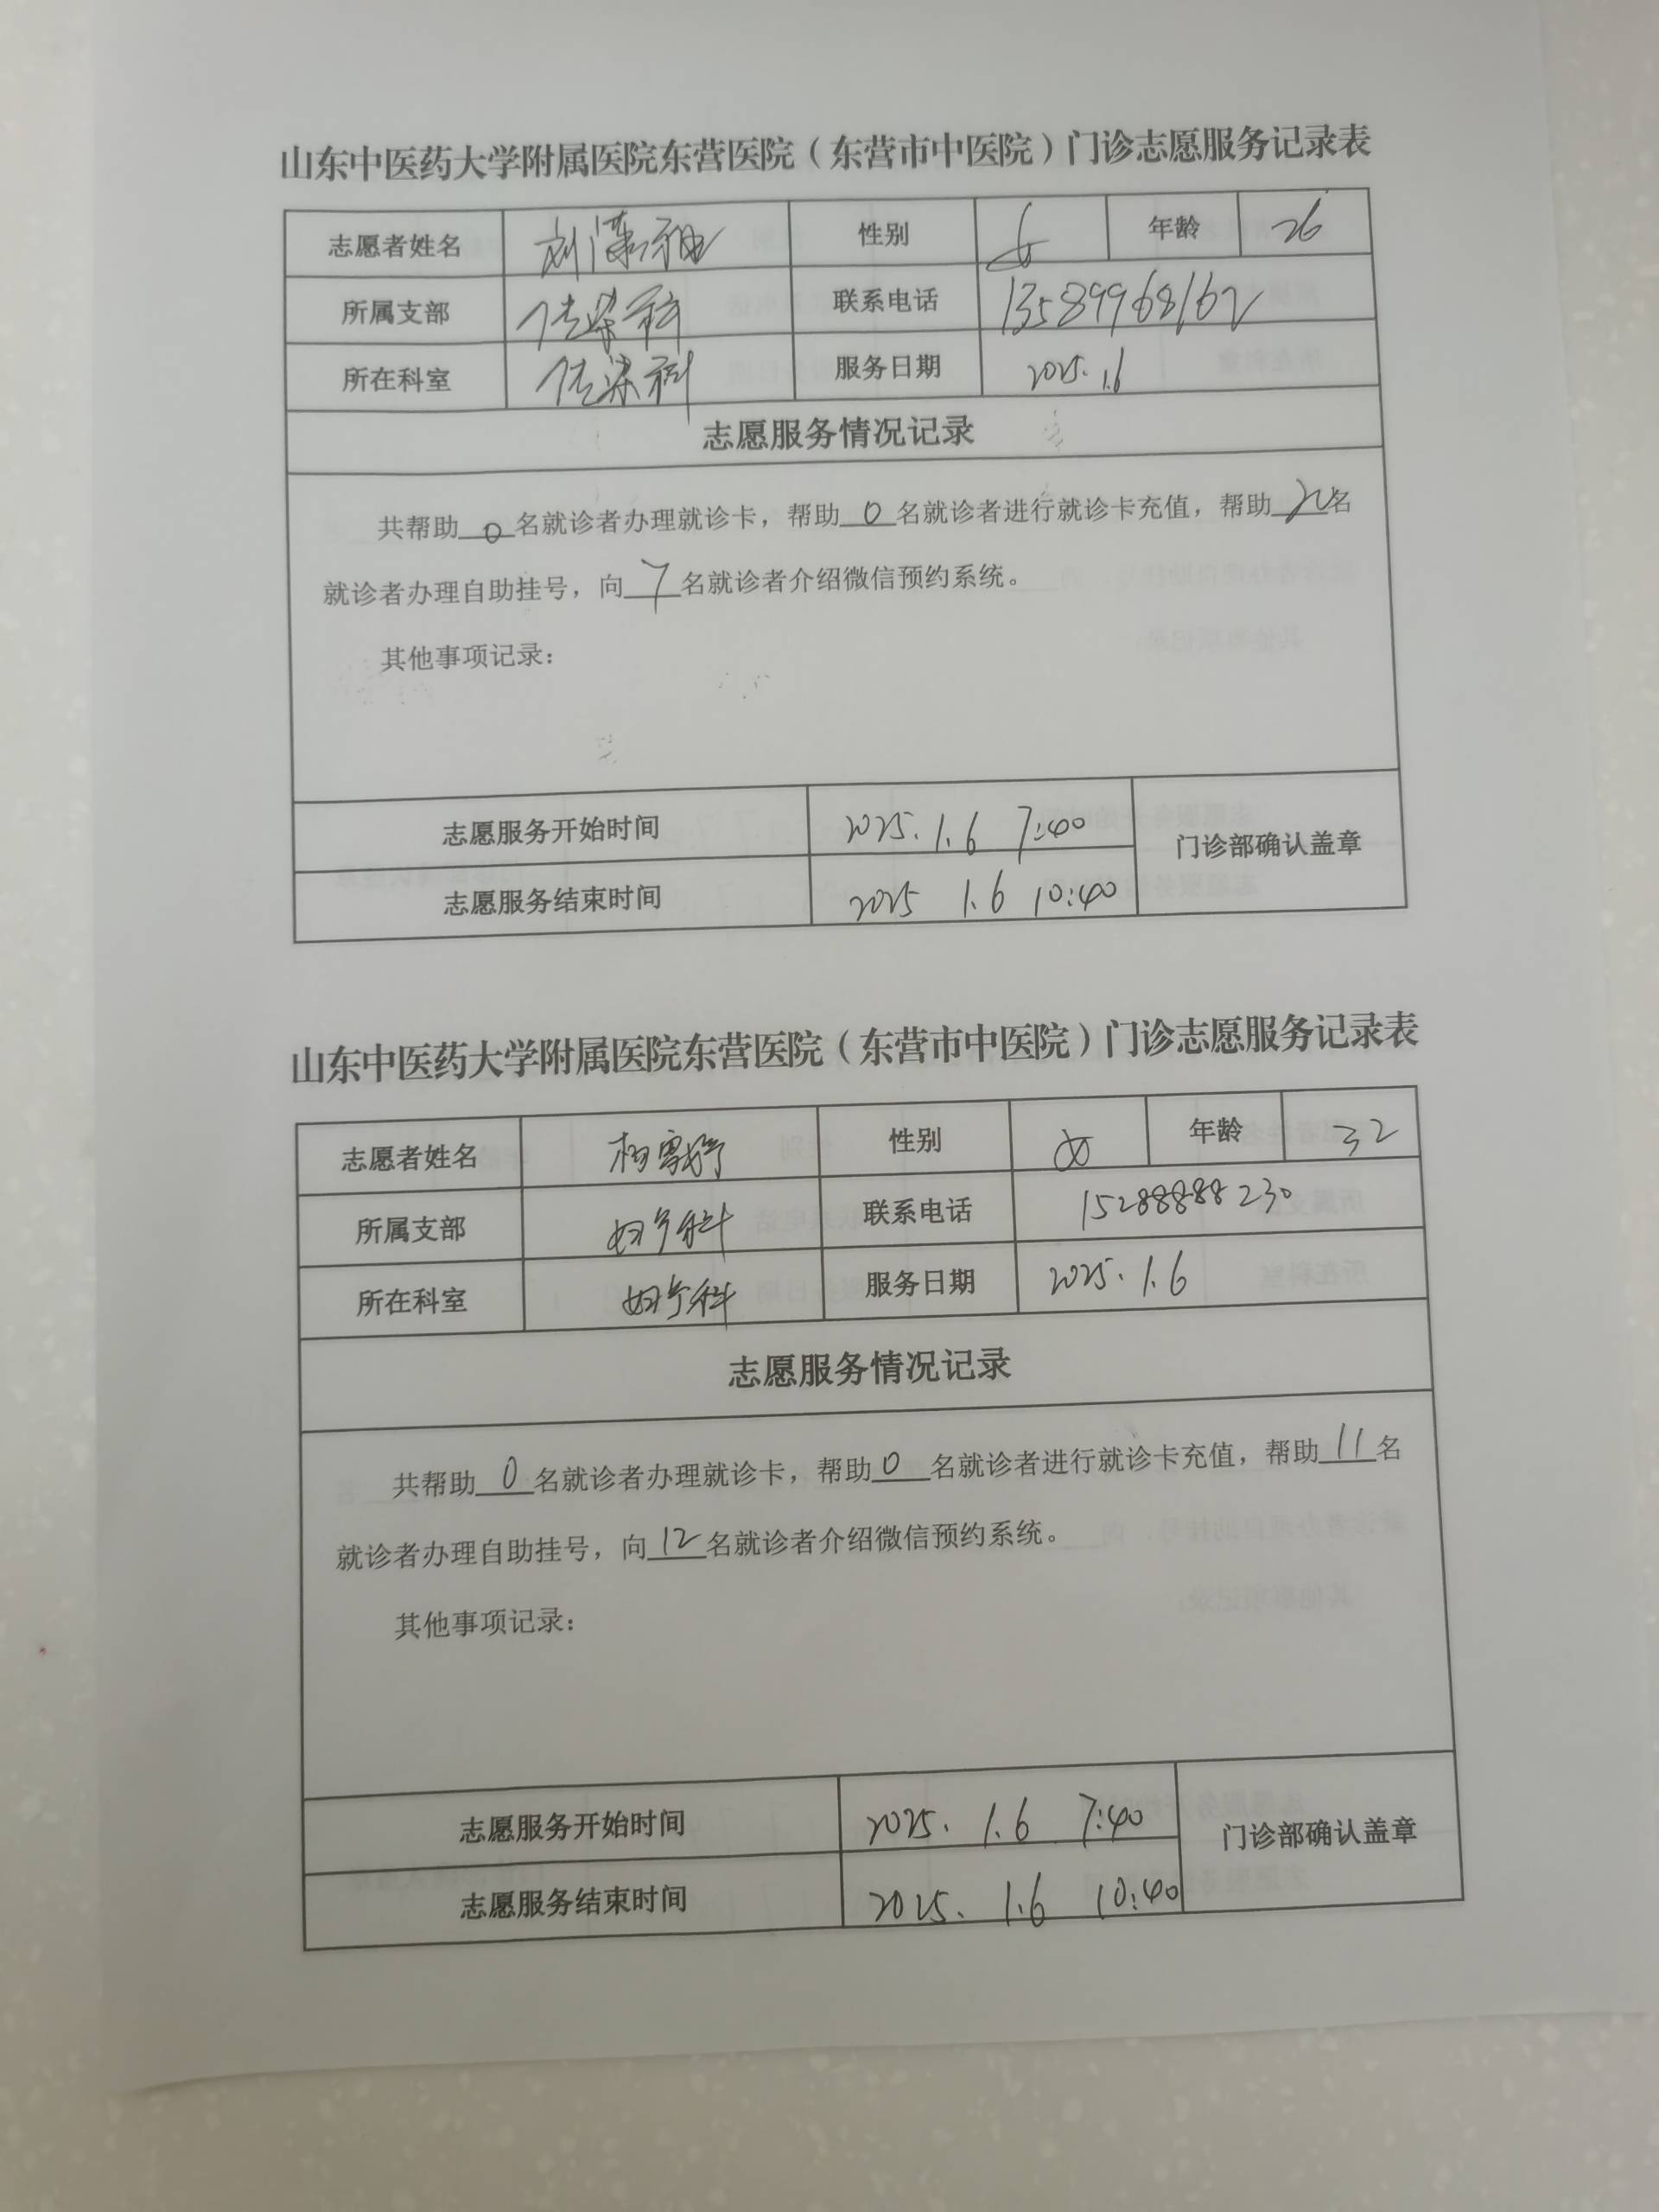 山东中医药大学附属医院东营医院（东营市中医院）门诊志愿服务记录表
志愿者姓名 刘 性别 女 年龄 26
所属支部 传染科 联系电话 13589968162
所在科室 传染科 服务日期 2025.1.6
志愿服务情况记录
共帮助0名就诊者办理就诊卡，帮助0名就诊者进行就诊卡充值，帮助名
就诊者办理自助挂号，向7名就诊者介绍微信预约系统。
其他事项记录：
志愿服务开始时间 2025.1.6 7:40
门诊部确认盖章
志愿服务结束时间 2025 1.6 10:40
山东中医药大学附属医院东营医院（东营市中医院）门诊志愿服务记录表
志愿者姓名 杨雪婷 性别 女 年龄 32
所属支部 妇产科 联系电话 15288888230
所在科室 妇产科 服务日期 2025.1.6
志愿服务情况记录
共帮助0名就诊者办理就诊卡，帮助0名就诊者进行就诊卡充值，帮助11名
就诊者办理自助挂号，向12名就诊者介绍微信预约系统。
其他事项记录：
志愿服务开始时间 2025. 1.6 7:40
门诊部确认盖章
志愿服务结束时间 2025. 1.6 10:40